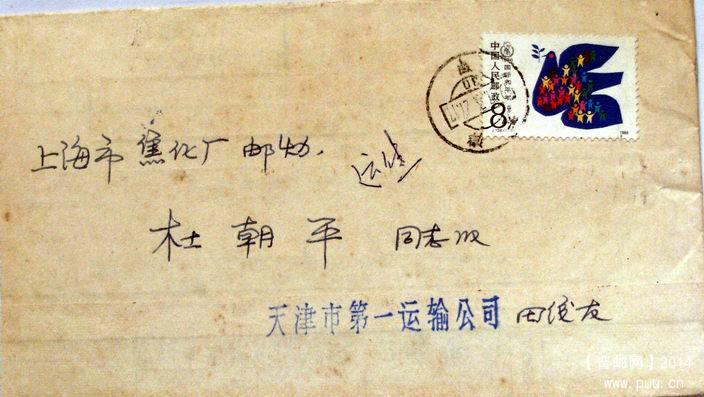 中国人民邮政
国际和平年
8
1986
上海市焦化厂邮办
杜朝平 同志收
天津市第一运输公司 田俊友
2014
www.puu.cn